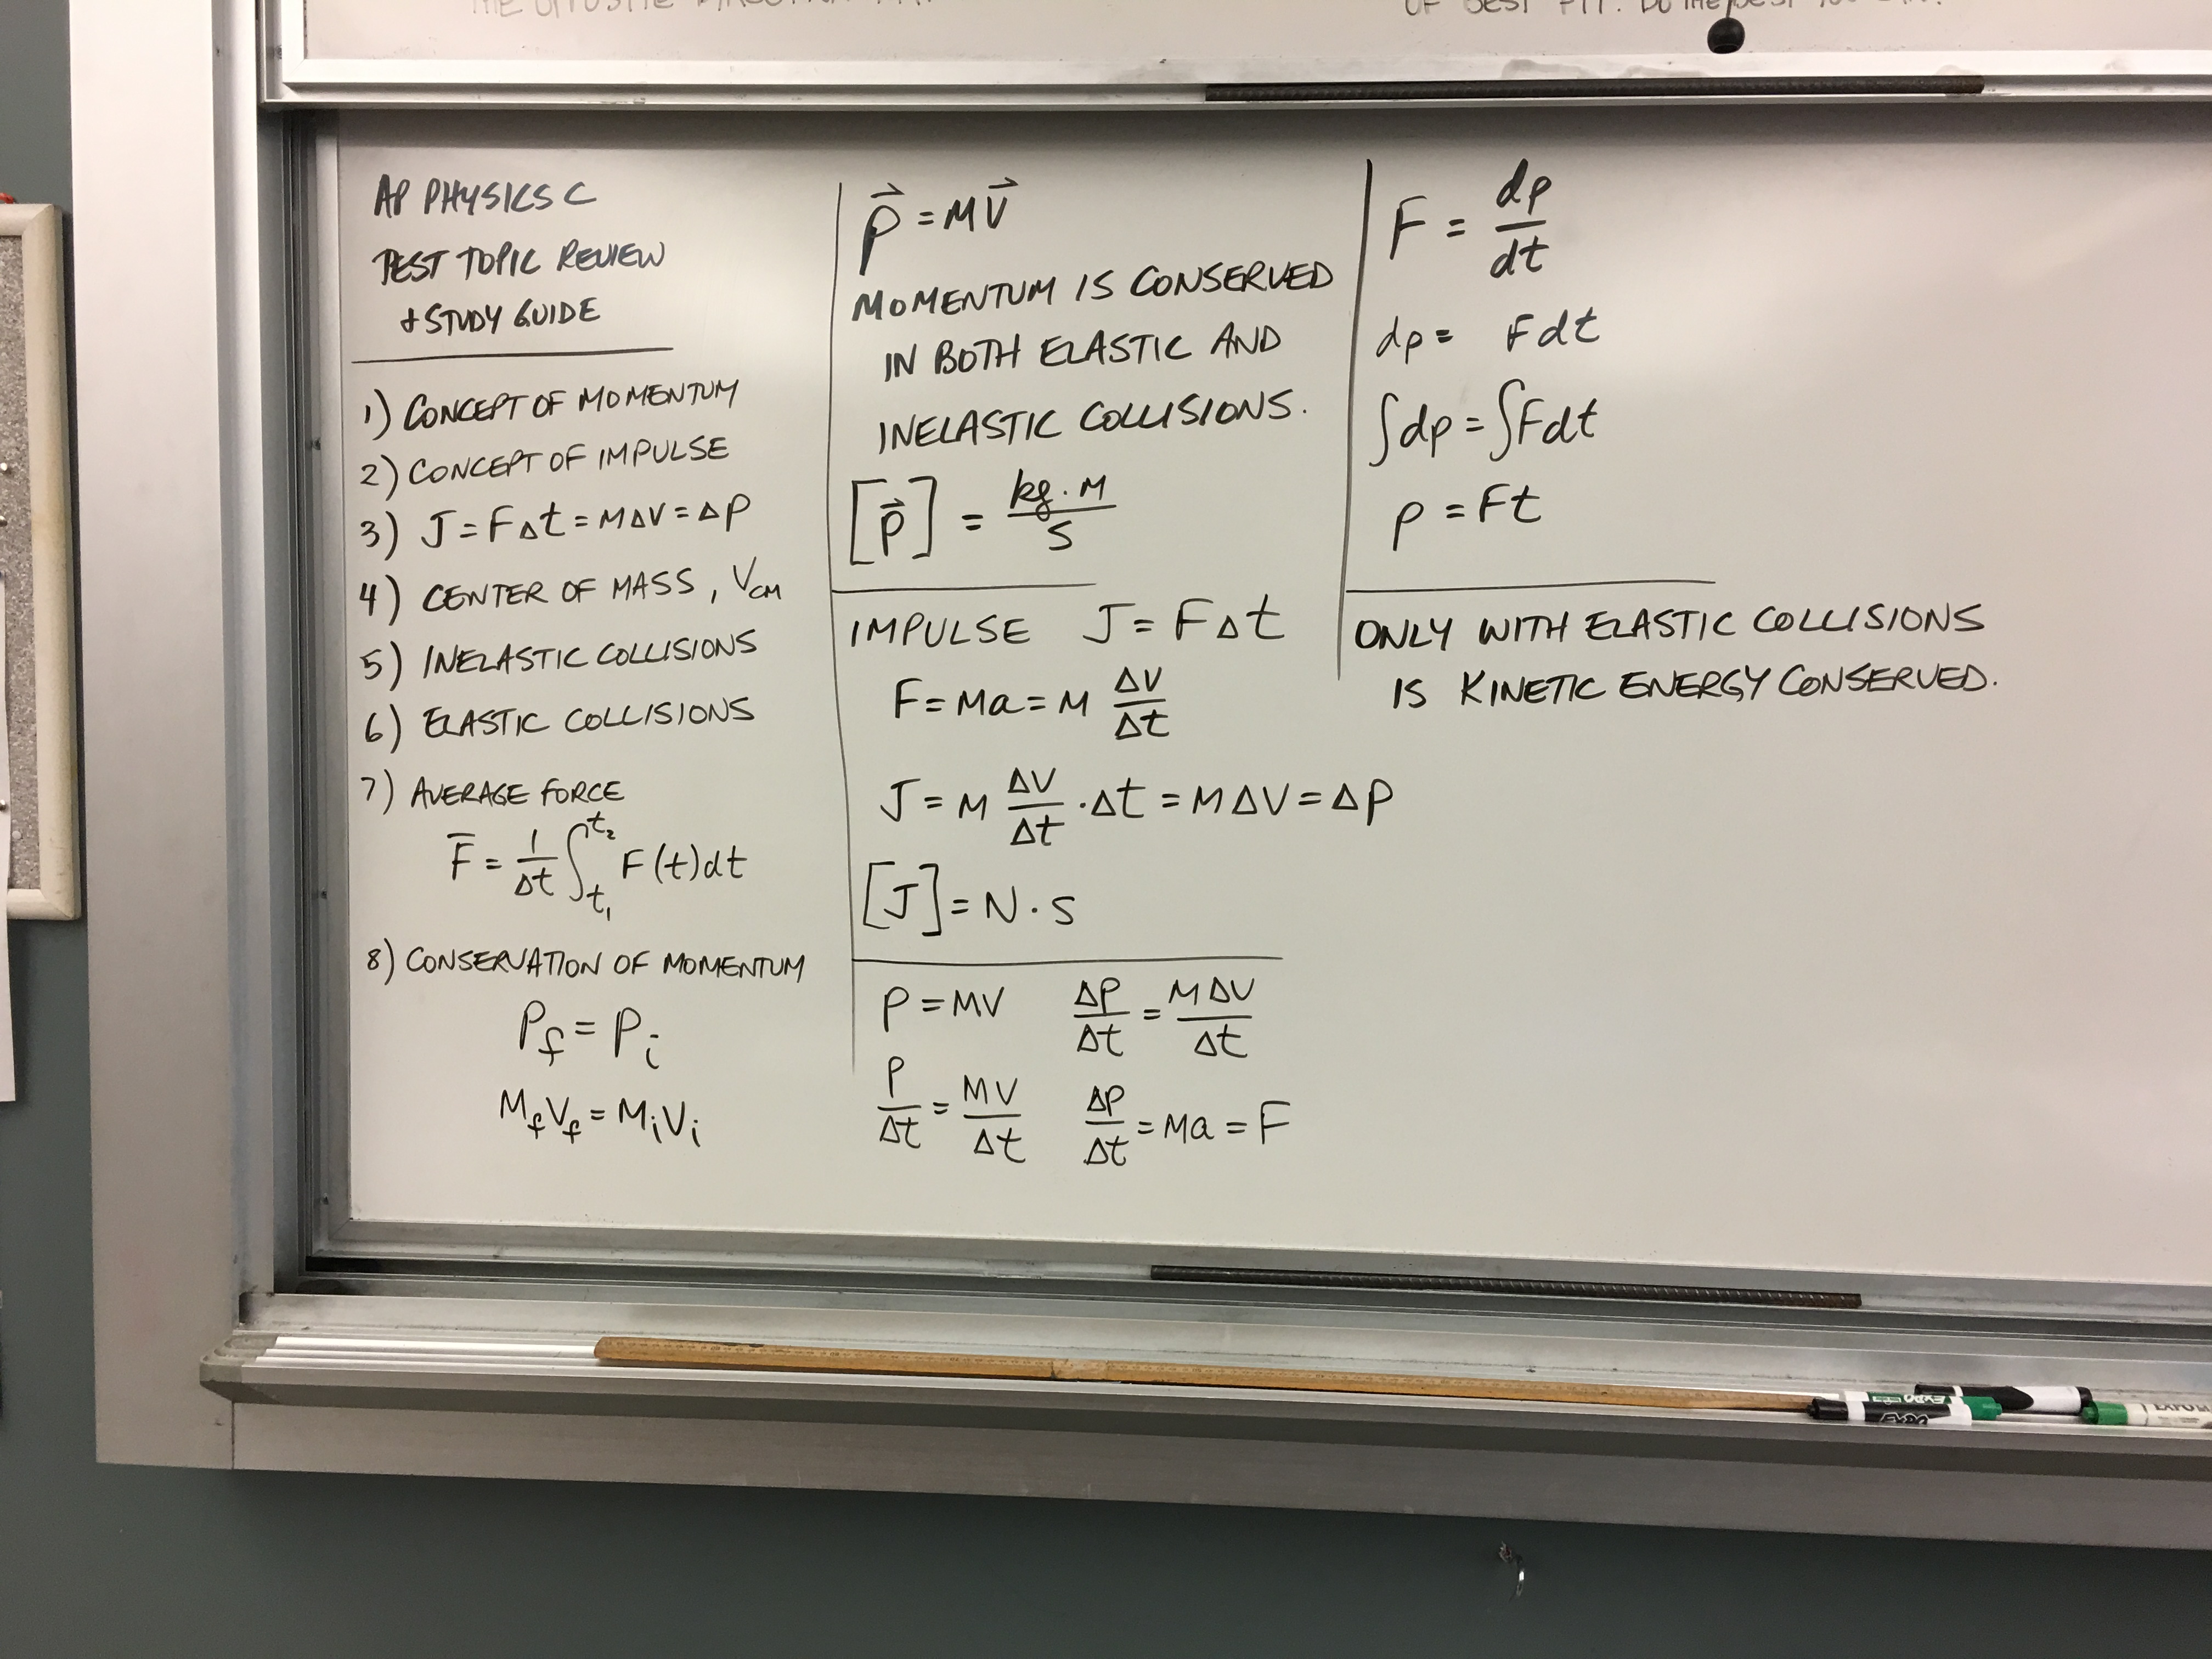 OF BEST FIT. DO THE BEST YOU CAN.
AP PHYSICS C
TEST TOPIC REVIEW
+ STUDY GUIDE
1) CONCEPT OF MOMENTUM
2) CONCEPT OF IMPULSE
3) J = FΔt = MΔV = ΔP
4) CENTER OF MASS, V_CM
5) INELASTIC COLLISIONS
6) ELASTIC COLLISIONS
7) AVERAGE FORCE
F̄ = 1/Δt ∫_t₁^t₂ F(t)dt
8) CONSERVATION OF MOMENTUM
P_f = P_i
M_f V_f = M_i V_i
p⃗ = M V⃗
MOMENTUM IS CONSERVED
IN BOTH ELASTIC AND
INELASTIC COLLISIONS.
[p⃗] = kg·M/S
IMPULSE J = FΔt
F = Ma = M ΔV/Δt
J = M ΔV/Δt · Δt = MΔV = ΔP
[J] = N·S
P = MV ΔP/Δt = MΔV/Δt
P/Δt = MV/Δt ΔP/Δt = Ma = F
F = dp/dt
dp = Fdt
∫dp = ∫Fdt
p = Ft
ONLY WITH ELASTIC COLLISIONS
IS KINETIC ENERGY CONSERVED.
EXPO
EXPO
EXPO